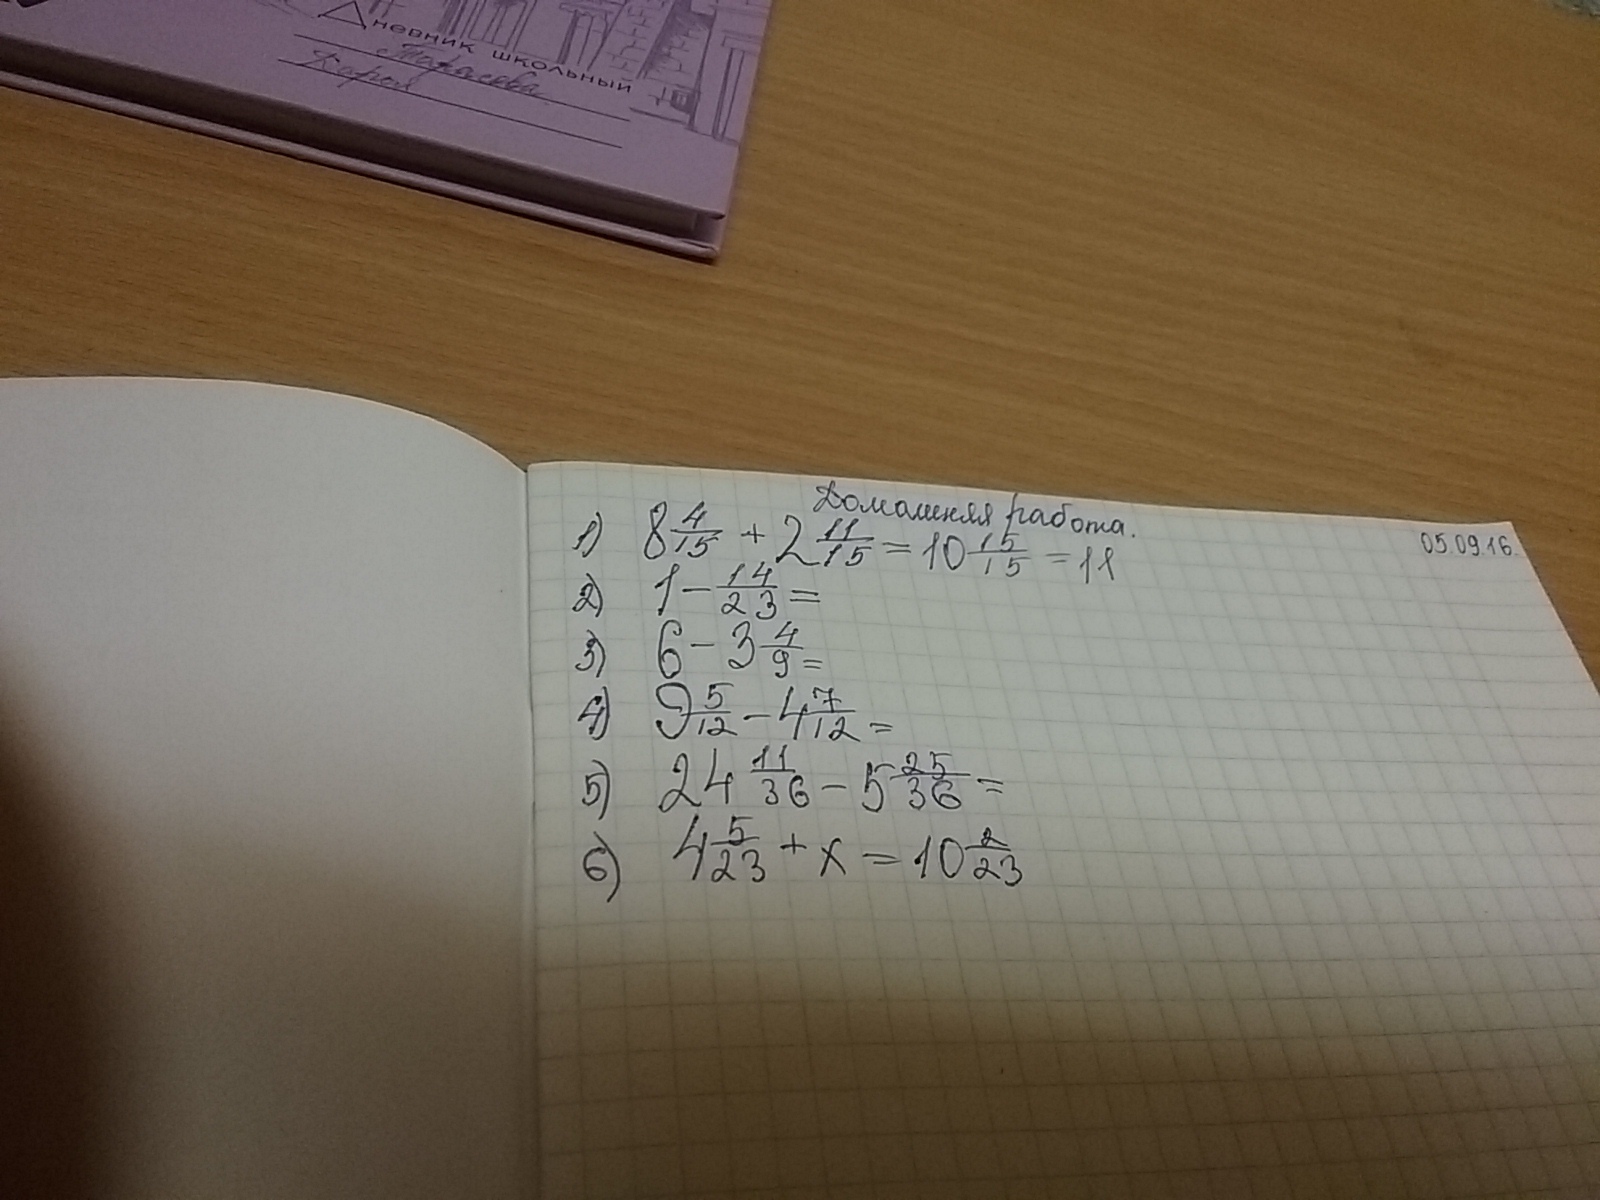 Дневник школьный
Тарасова
Домашняя работа.
05.09.16.
1) 8 4/15 + 2 11/15 = 10 15/15 = 11
2) 1 - 14/23 =
3) 6 - 3 4/9 =
4) 9 5/12 - 4 7/12 =
5) 24 11/36 - 5 25/36 =
6) 4 5/23 + x = 10 2/23